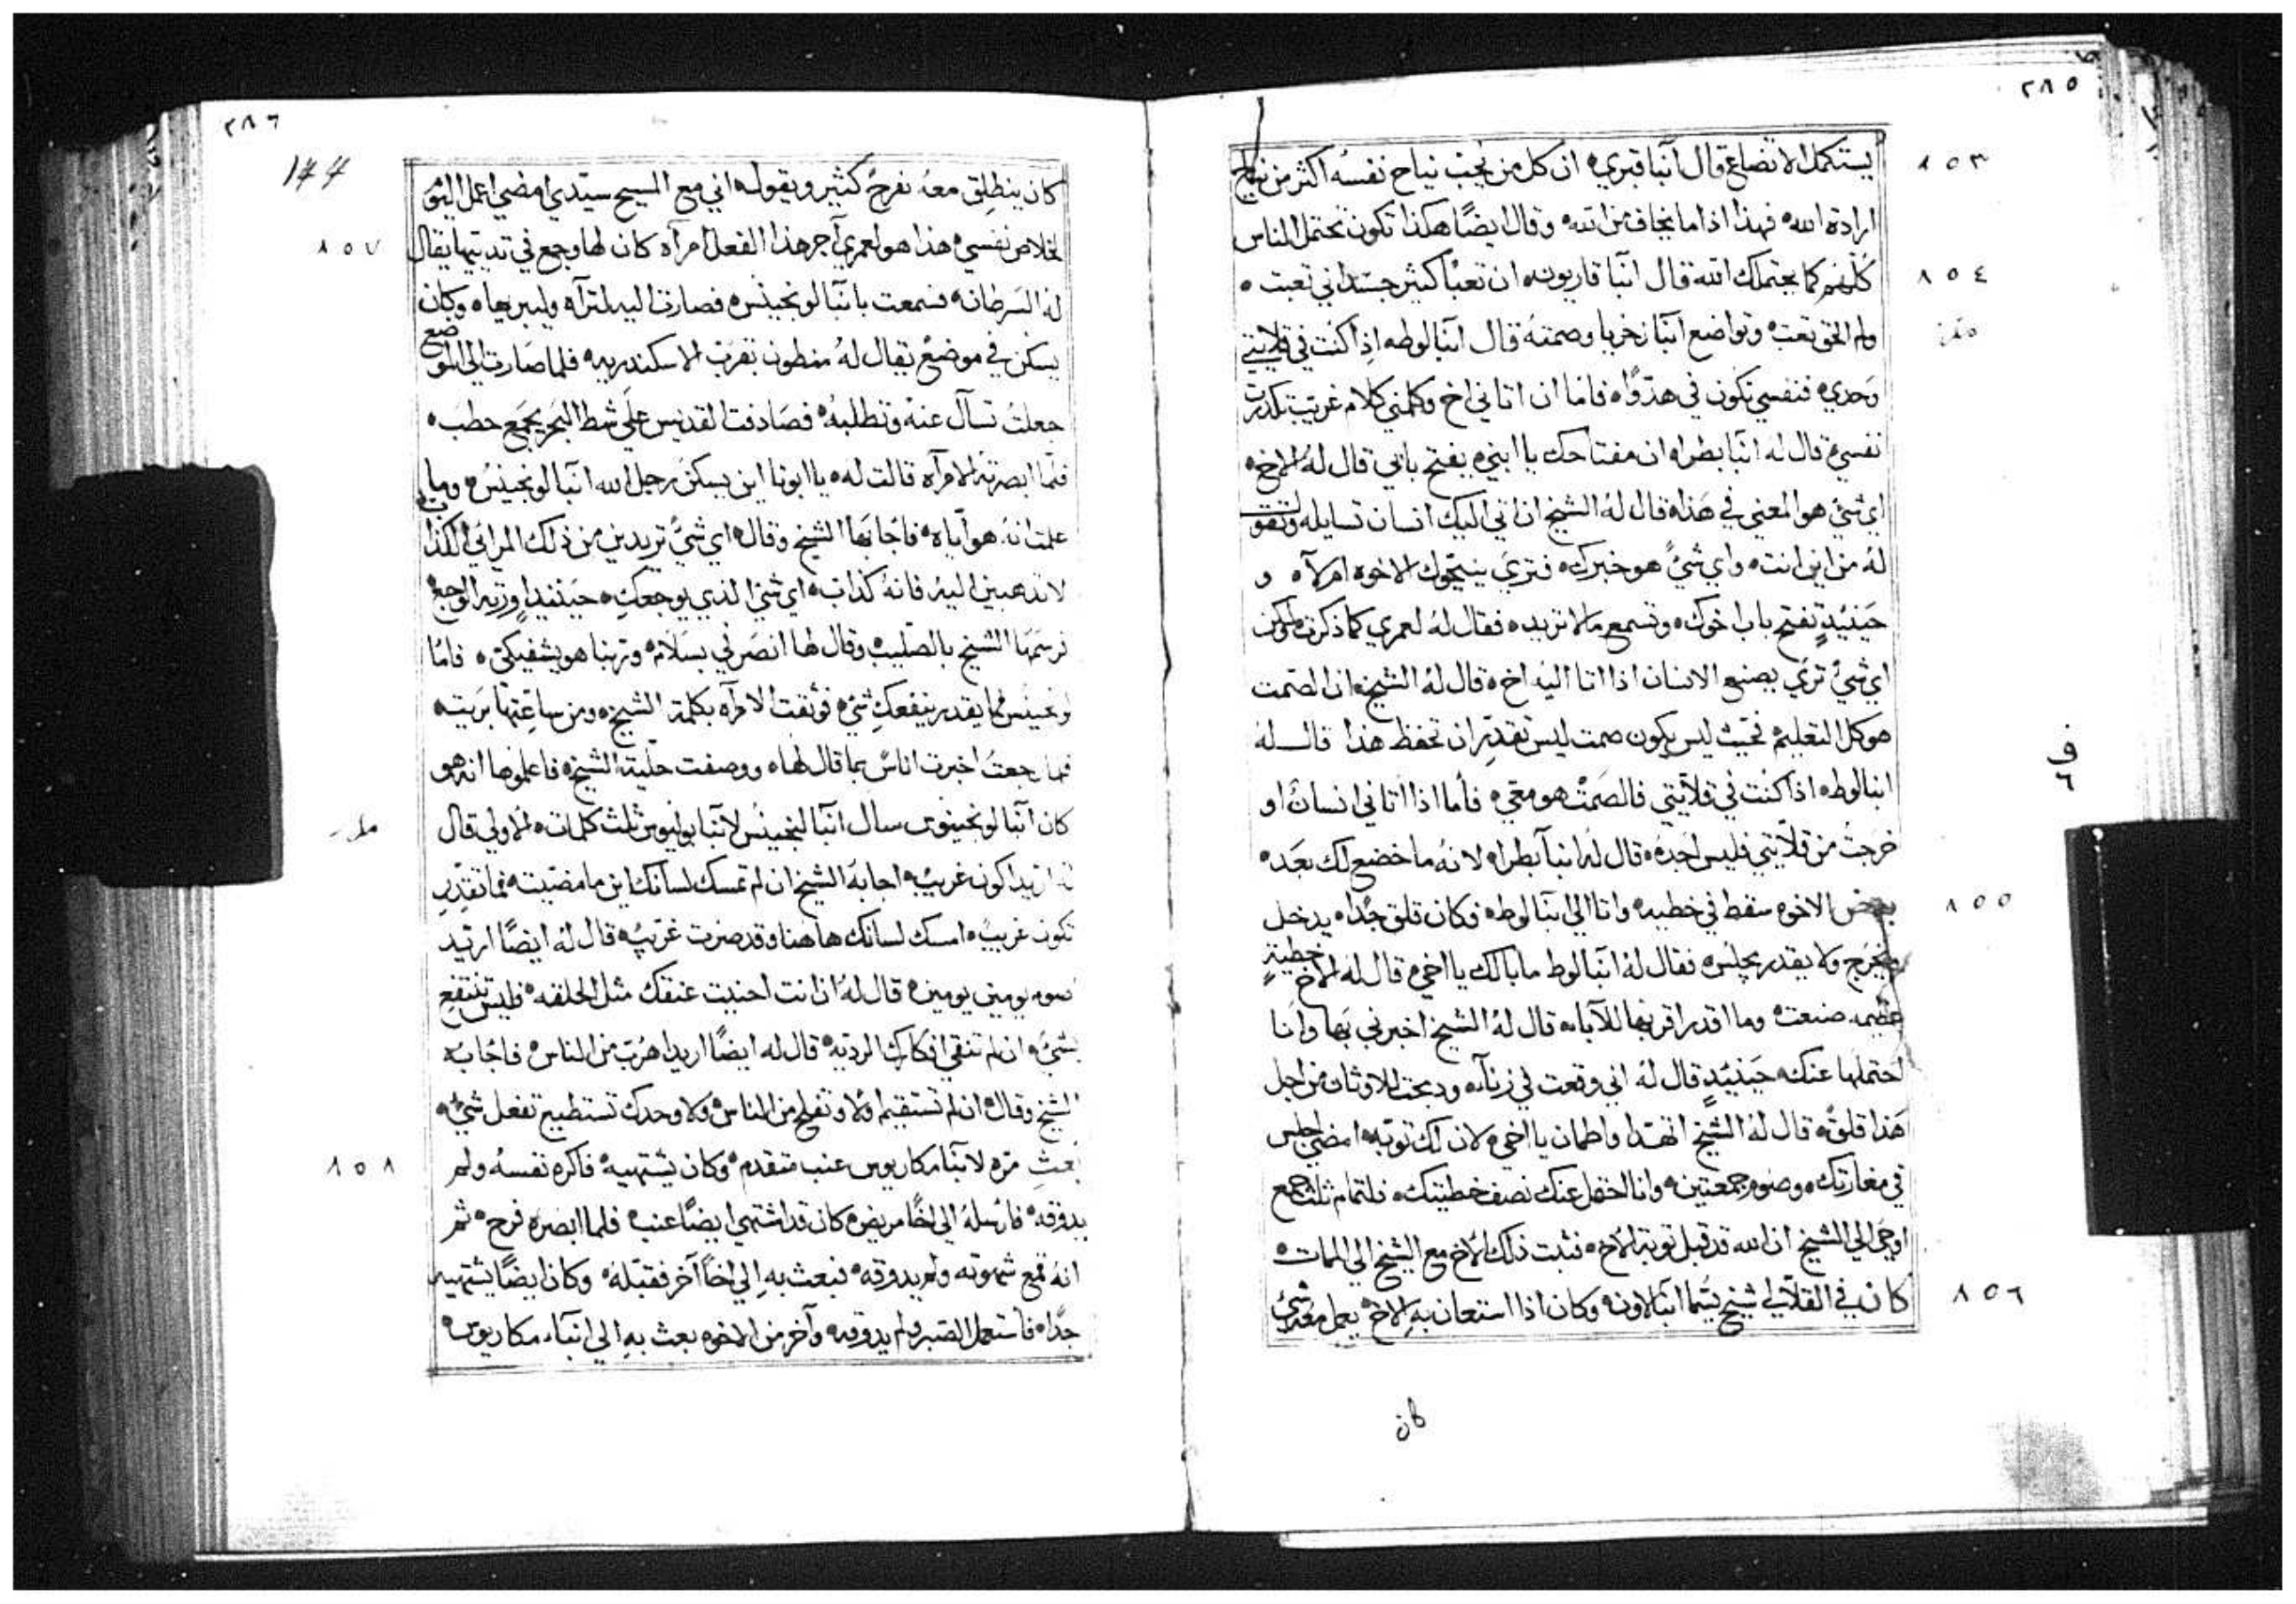 ٢٨٥
يستكمل الاتضاع قال آنبا قبري ان كل من يحب نياح نفسه اكثر من نياح
٨٥٣
ارادة الله فهذا اذا ما يخاف من الله وقال ايضًا هكذا تكون تحتمل الناس
كُلهم كما يحتملك الله قال انبا قاريون ان تعبًا كثير جسداني تعبت
٨٥٤
ولم الحق تعب وتواضع انبا زخريا وصمته قال انبا لوط اذا كنت في قلايتي
وَحدي فنفسي تكون في هدوًا فاما ان اتاني اخ وكلمني كلام غريب تكدرت
نفسي قال له انبا بطرا ان مفتاحك يا ابني يفتح بابي قال لهُ الاخ
اي شي هو المعني في هذا قال لهُ الشيخ ان اتي اليك انسان تسايله وتقو
لهُ من اين انت واي شيً هو خبرك فتري ينيحوك الاخوه ام لا و
حينيدٍ تفتح باب اخوك وتسمع ما لا تريد فقال لهُ لعمري كما ذكرت ولكن
اي شيً تري يصنع الانسان اذا اتا اليه اخ قال لهُ الشيخ ان الصمت
هو كل التعليم فحيث ليس يكون صمت ليس تقدر ان تحفظ هذا قال لهُ
انبا لوط اذا كنت في قلايتي فالصمت هو معي فاما اذا اتاني انسانٌ او
خرجتُ من قلايتي فليس اجده قال له انبا بطرا لانهُ ما خضع لك بعَد
بعض الاخوه سقط في خطيه واتا الي انبا لوط فكان قلق جدًا يدخل
٨٥٥
ويخرج ولا يقدر يجلس فقال لهُ انبا لوط ما بالك يا اخي قال له الاخ خطيةٍ
عظيمه صنعت وما اقدر اقر بها للآبا قال لهُ الشيخ اخبرني بها وانا
احتملها عنك حينيدٍ قال لهُ اني وقعت في زناه ودبحت للاوثان من اجل
هذا قلق قال لهُ الشيخ اتهدا واطمان يا اخي لان لك توبه امضي اجلس
في مغارتك وصوم جمعتين وانا احتمل عنك نصف خطيتك فلتمام ثلث جمع
اوحَي الي الشيخ ان الله قد قبل توبة الاخ فثبت ذلك الاخ مع الشيخ الي الممات
كان في القلالي شيخ يسَما انبا لاونه وكان اذا استعان به الاخ يعمل معه شيً
٨٥٦
كان
٢٨٦
١٤٤
كان ينطلق معهُ بفرحٌ كثير ويقول اني مع المسيح سيدي امضي اعمل اليوم
لخلاص نفسي هذا هو لعمري آجر هذا الفعل امرآه كان لها وجع في تدييها يقال
٨٥٧
له السَرطان فسمعت بانبا لونجينس فصارت اليه لتراه وليبريها وكان
يسكن في موضعٍ يقال لهُ منطون بقرب الاسكندريه فلما صَارت الي الموضع
جعلتُ تسآل عنهُ وتطلبهُ فصَادفت القديس علي شط البَحر يجمَع حطَب
فلما ابصرته الامرآه قالت له يا ابونا اين يسكن رجل الله انبا لونجينس وما
علمت انهُ هو اياه فاجابها الشيخ وقال اي شيً تريدين من ذلك المرائي الكذاب
لا تدهبين اليه فانهُ كذاب اي شي الذي يوجعكِ حينيدٍ اورته الوجع
فرشمَها الشيخ بالصليب وقال لها انصَرفي بسلام وربنا هو يشفيكي فاما
لونجينس فما يقدر ينفعكِ شي فوثقت الامرآه بكلمة الشيخ ومن ساعتها بريت
فلما رجعتُ اخبرت اناسٌ بما قال لها ووصفت حلية الشيخ فاعلموها انه هو
كان آنبا لونجينوس سال آنبا لنجينس لانبا بولنيوس ثلث كلمات الاولي قال
له اريد اكون غريبٌ اجابهَ الشيخ ان لم تمسك لسانك اين ما مضيت فما تقدر
تكون غريبً امسك لسانك ها هنا وقد صرت غريبً قال لهُ ايضًا اريد
صوم يومين يومين قال لهُ ان انت احنيت عنقك مثل الحلقه فليس تنتفع
بشيً ان لم تنقي افكارك الرديه قال له ايضًا اريد اهرُب من الناس فاجابهُ
الشيخ وقال ان لم تستقيم اولا وتفلح من الناس ولا وحدك تستطيع تفعل شيً
بُعثِ مرّه لانبا مكاريوس عنب متقدم وكان يشتهيه فاكره نفسهُ ولم
٨٥٨
يدوقه فارسلهُ الي اخًا مريض كان قد اشتهي ايضًا عنب فلما ابصره فرح ثم
انهُ قمع شهوته ولم يدوقه فبعث بهِ الي اخًا آخر فقبلهُ وكان ايضًا يشتهيه
جدًا فاستعمل الصَبر ولم يدوقه وآخر من الاخوه بعث بهِ الي انبا مكاريوس